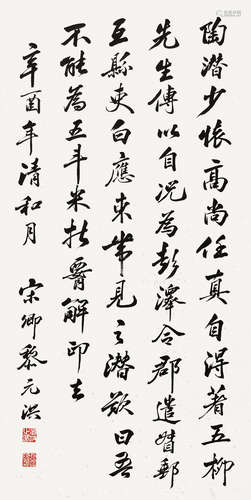 陶潜少怀高尚任真自得著五柳
先生傳以自况為彭澤令郡遣督郵
至縣吏白應束帶見之潜歎曰吾
不能為五斗米折腰解印去
辛酉年清和月
宋卿黎元洪